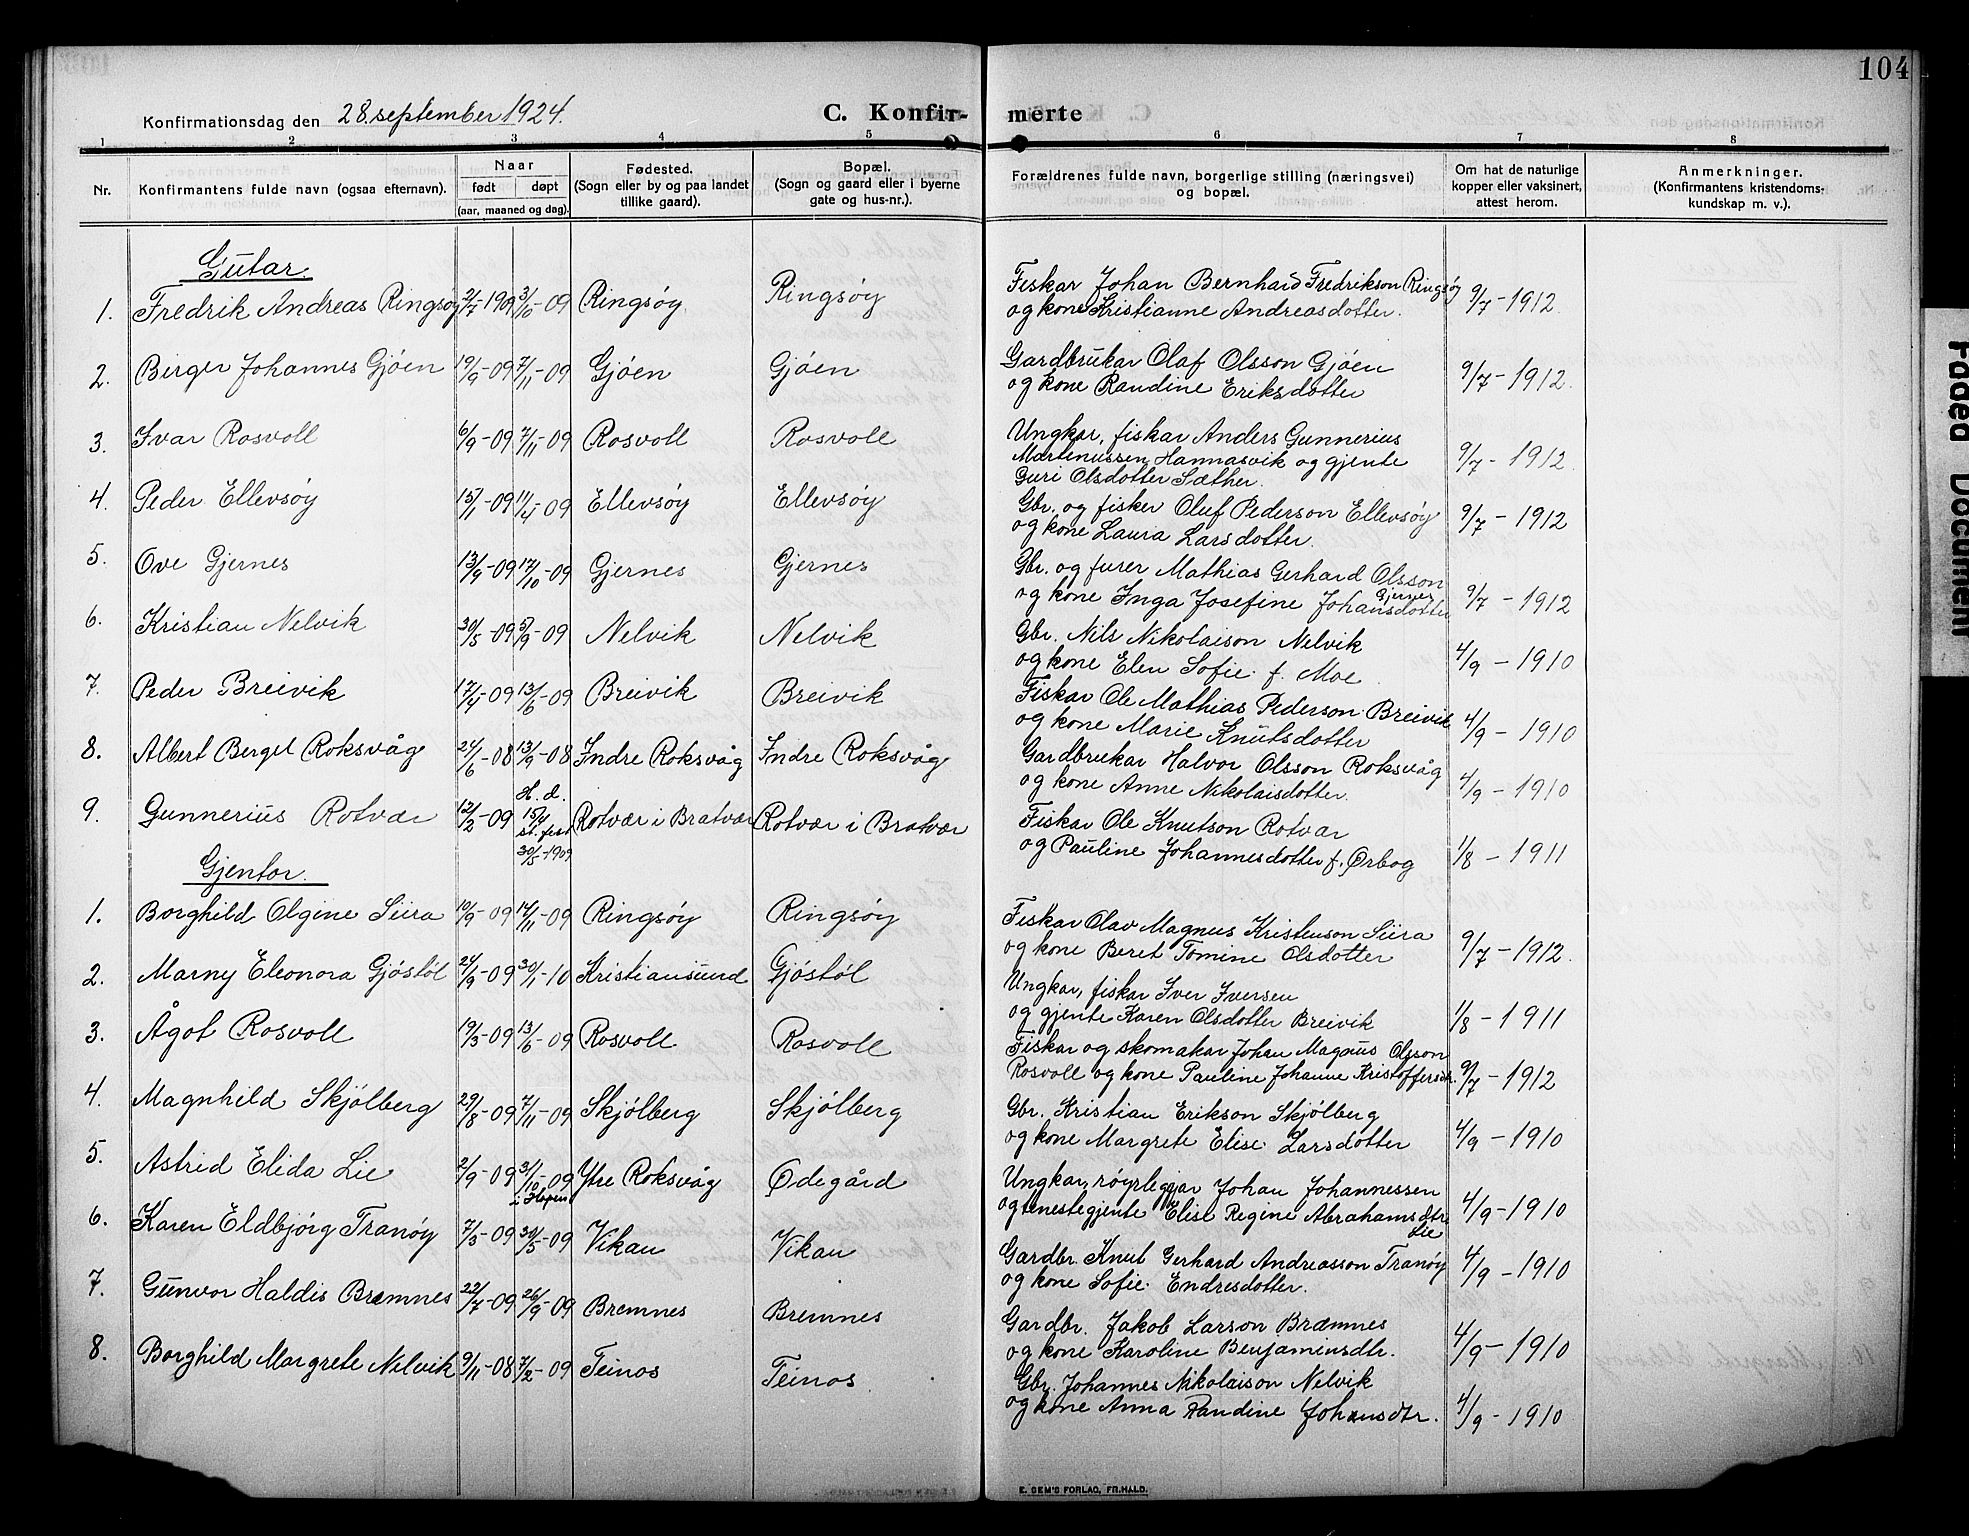 104
Konfirmationsdag den 28. september 1924. C. Konfir- merte
1 2 3 4 5 6 7 8
Nr. Konfirmantens fulde navn (ogsaa efternavn). Naar født døpt (aar, maaned og dag). Fødested. (Sogn eller by og paa landet tillike gaard). Bopæl. (Sogn og gaard eller i byerne gate og hus-nr.). Forældrenes fulde navn, borgerlige stilling (næringsvei) og bopæl. Om hat de naturlige kopper eller vaksinert, attest herom. Anmerkninger. (Konfirmantens kristendoms-kundskap m. v.).
Gutar.
1. Fredrik Andreas Ringsøy 2/7-1909 3/10-09 Ringsøy Ringsøy Fiskar Johan Bernhard Fredrikson Ringsøy 9/7-1912
og kone Kristianne Andreasdotter.
2. Birger Johannes Gjøen 19/9-09 7/11-09 Gjøen Gjøen Gardbrukar Olaf Olsson Gjøen 9/7-1912.
og kone Randine Eriksdotter
3. Ivar Rosvoll 6/9-09 7/11-09 Rosvoll Rosvoll Ungkar, fiskar Anders Gunnerius 9/7-1912.
Martenussen Hannasvik og gjente
Guri Olsdotter Sæther.
4. Peder Ellevsøy 15/1-09 11/4-09 Ellevsøy Ellevsøy Gbr. og fisker Oluf Pederson Ellevsøy 9/7-1912
og kone Laura Larsdotter.
5. Ove Gjernes 13/9-09 17/10-09 Gjernes Gjernes Gbr. og furer Mathias Gerhard Olsson 9/7-1912
Gjernes
og kone Inga Josefine Johansdotter
6. Kristian Nelvik 30/5-09 5/9-09 Nelvik Nelvik Gbr. Nils Nikolaison Nelvik 4/9-1910
og kone Elen Sofie f. Moe
7. Peder Breivik 17/4-09 13/6-09 Breivik Breivik Fiskar Ole Mathias Pederson Breivik 4/9-1910
og kone Marie Knutsdotter
8. Albert Berget Roksvåg 24/6-08 13/9-08 Indre Roksvåg Indre Roksvåg Gardbrukar Halvor Olsson Roksvåg 4/9-1910
og kone Anne Nikolaisdotter.
9. Gunnerius Rotvær 12/2-09 H. d. 15/4 st. fest 30/5-1909 Rotvær i Bratvær Rotvær i Bratvær Fiskar Ole Knutson Rotvær 1/8-1911
og Pauline Johannesdotter f. Ørbog
Gjentor.
1. Borghild Olgine Siira 10/9-09 14/11-09 Ringsøy Ringsøy Fiskar Olav Magnus Kristenson Siira 9/7-1912.
og kone Beret Tomine Olsdotter
2. Marny Eleonora Gjøstøl 24/9-09 30/1-10 Kristiansund Gjøstøl Ungkar, fiskar Iver Iversen 1/8-1911
og gjente Karen Olsdotter Breivik
3. Ågot Rosvoll 19/3-09 13/6-09 Rosvoll Rosvoll Fiskar og skomakar Johan Magnus Olsson 9/7-1912
Rosvoll og kone Pauline Johanne Kristoffersdtr.
4. Magnhild Skjølberg 29/8-09 7/11-09 Skjølberg Skjølberg Gbr. Kristian Erikson Skjølberg 4/9-1910
og kone Margrete Elise Larsdotter
5. Astrid Elida Lie 2/9-09 3/10-09 i Hopen Ytre Roksvåg Ødegård Ungkar, røyrleggjar Johan Johannessen 4/9-1910
og tenestegjente Elise Regine Abrahamsdtr.
Lie
6. Karen Eldbjørg Tranøy 7/3-09 30/5-09 Vikan Vikan Gardbr. Knut Gerhard Andreasson Tranøy 4/9-1910
og kone Sofie Endresdotter.
7. Gunvor Haldis Bremnes 22/7-09 26/9-09 Bremnes Bremnes Gardbr. Jakob Larson Bræmnes 4/9-1910
og kone Karoline Benjaminsdtr.
8. Borghild Margrete Nelvik 9/11-08 7/2-09 Teinos Teinos Gbr. Johannes Nikolaison Nelvik 4/9-1910
og kone Anna Randine Johansdtr.
E. SEM'S FORLAG, FR.HALD.
Faded Document